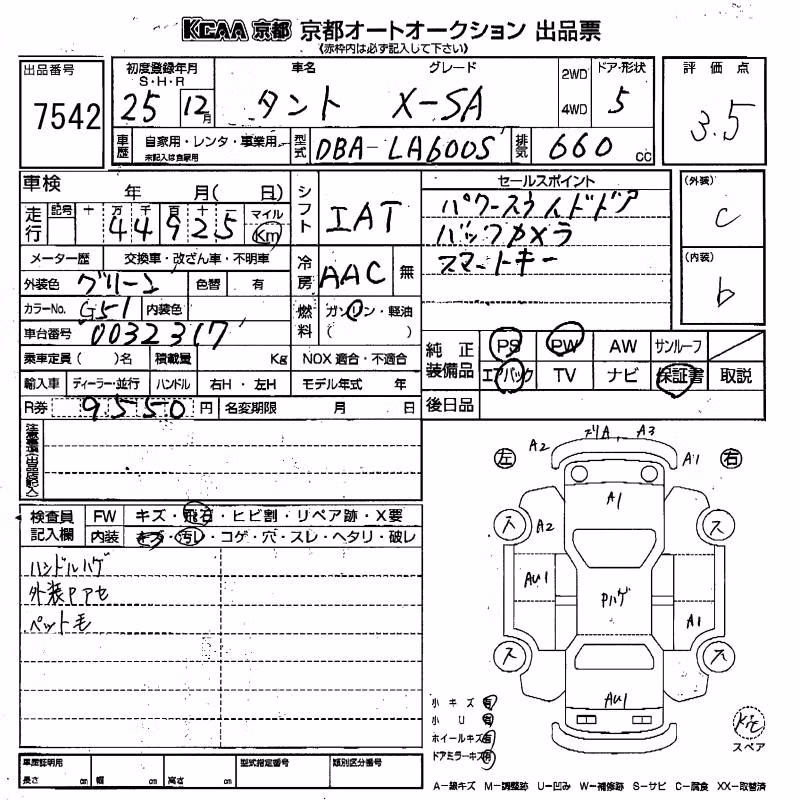 KCAA 京都 京都オートオークション 出品票
《赤枠内は必ず記入して下さい》
出品番号 7542
初度登録年月 S・H・R 25 12月
車名 グレード タント X-SA
2WD 4WD
ドア・形状 5
評価点 3.5
車歴 自家用・レンタ・事業用 未記入は自家用
型式 DBA-LA600S
排気 660 cc
車検 年 月( 日)
シフト IAT
走行 記号 十 万 千 百 十 一 マイル Km 44925
メーター歴 交換車・改ざん車・不明車
冷房 AAC 無
外装色 グリーン 色替 有
カラーNo. G51 内装色
燃料 ガソリン・軽油 ( )
車台番号 0032317
乗車定員( )名 積載量 Kg NOX 適合・不適合
輸入車 ディーラー・並行 ハンドル 右H・左H モデル年式 年
R券 9550円 名変期限 月 日
セールスポイント
パワースライドドア
バックカメラ
スマートキー
(外装) C
(内装) b
純正装備品 PS PW AW サンルーフ
エアバック TV ナビ 保証書 取説
後日品
検査員記入欄 FW キズ・飛石・ヒビ割・リペア跡・X要
内装 キズ・汚レ・コゲ・穴・スレ・ヘタリ・破レ
ハンドルハゲ
外装Pアセ
ペット毛
左 A2 A A3 A1 右
A1
ス A2 ス
AU1 Pハゲ A1
ス ス
AU1
小キズ 有
小U 有
ホイールキズ 有
ドアミラーキズ 有
Kit スペア
車庫証明用 長さ cm 幅 cm 高さ cm
型式指定番号 類別区分番号
A-線キズ M-調整跡 U-凹み W-補修跡 S-サビ C-腐食 XX-取替済